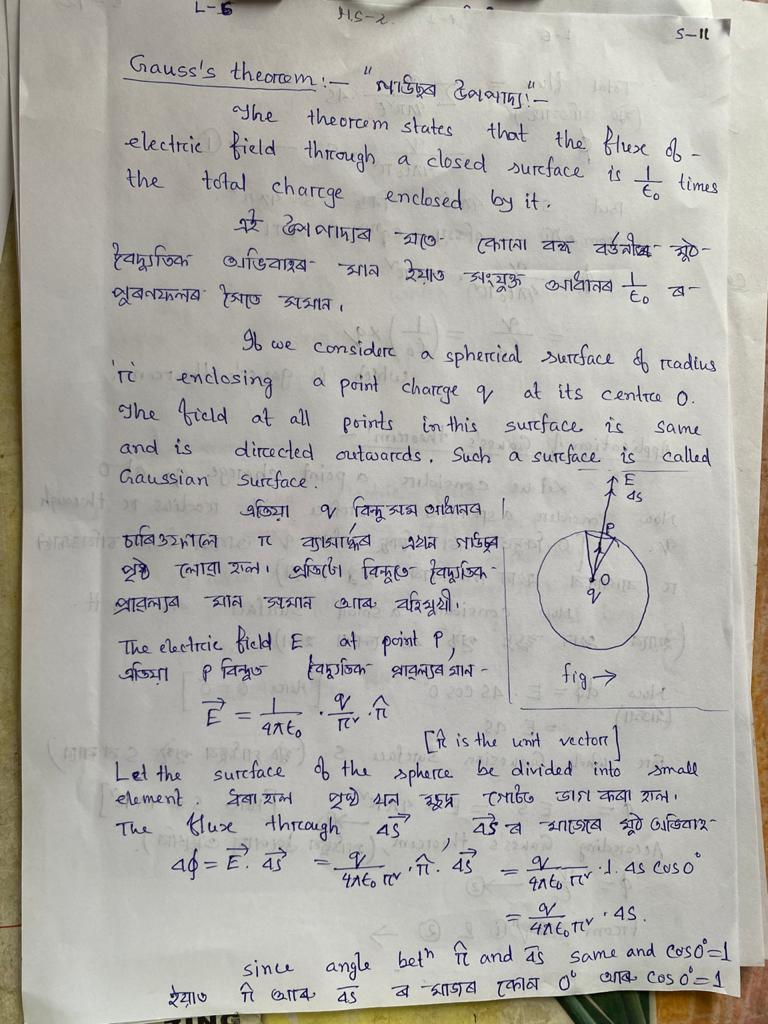 L-5
H.S-2.
S-11
Gauss's theorem:- "গাউছৰ উপপাদ্য:"-
The theorem states that the flux of -
electric field through a closed surface is 1/ε₀ times
the total charge enclosed by it.
এই উপপাদ্যৰ মতে কোনো বদ্ধ মুঠ-
বৈদ্যুতিক অভিবাহৰ মান ইয়াত সংযুক্ত আধানৰ 1/ε₀ ৰ-
পুৰণফলৰ সৈতে সমান।
If we consider a spherical surface of radius
'r' enclosing a point charge q at its centre O.
The field at all points in this surface is same
and is directed outwards. Such a surface is called
Gaussian surface.
এতিয়া q বিন্দুসম আধানৰ
চাৰিওফালে r ব্যাসাৰ্দ্ধৰ এখন গাউছৰ
পৃষ্ঠ লোৱা হ'ল। প্ৰতিটো বিন্দুতে বৈদ্যুতিক-
প্ৰাৱল্যৰ মান সমান আৰু বহিৰ্মুখী।
E
ΔS
P
O
q
fig →
The electric field E at point P,
এতিয়া P বিন্দুত বৈদ্যুতিক প্ৰাৱল্যৰ মান -
E⃗ = 1/4πε₀ · q/r² · r̂
[r̂ is the unit vector]
Let the surface of the sphere be divided into small
element. ধৰা হ'ল পৃষ্ঠ খন ক্ষুদ্ৰ ভাগ কৰা হ'ল।
The flux through ΔS⃗, ΔS⃗ ৰ মাজেৰে মুঠ অভিবাহ-
Δϕ = E⃗. ΔS⃗ = q/4πε₀ r² · r̂. ΔS⃗ = q/4πε₀ r² · 1. ΔS cos0°
= q/4πε₀ r² · ΔS.
since angle betⁿ r̂ and ΔS⃗ same and cos0°=1
ইয়াত r̂ আৰু ΔS⃗ ৰ মাজৰ কোণ 0° আৰু cos0°=1